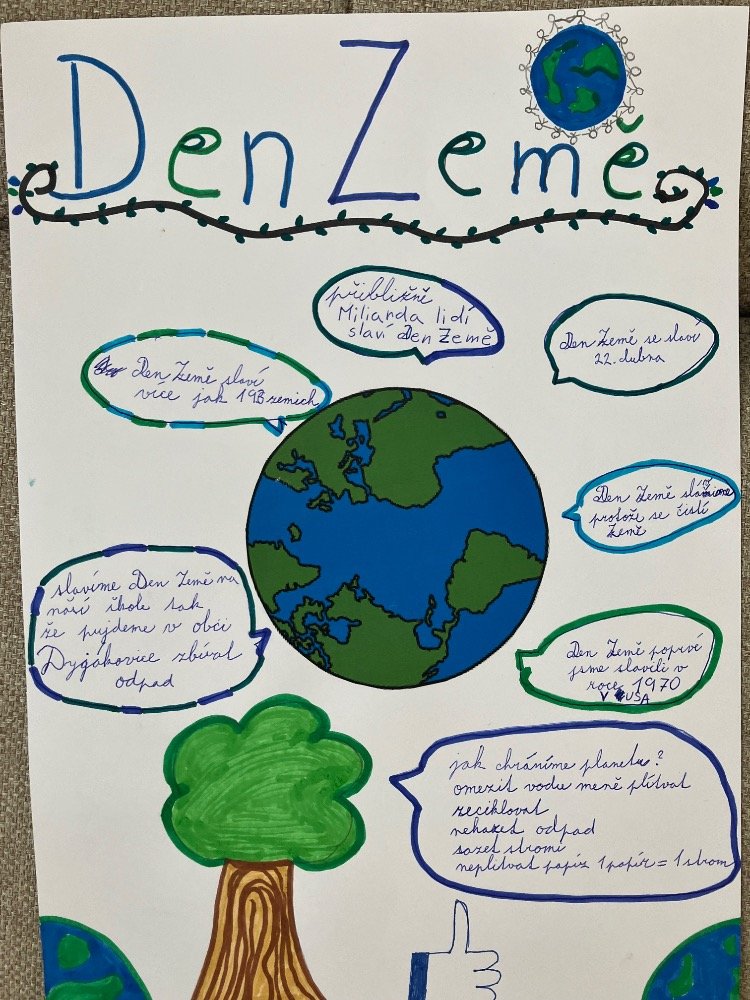 Den Země
přibližně
Miliarda lidí
slaví Den Země
Den Země se slaví
22. dubna
Den Země slaví
více jak 193 zemích
Den Země slavíme
protože se čistí
Země
slavíme Den Země na
naší škole tak
že pujdeme v obci
Dyjákovice zbírat
odpad
Den Země poprvé
jsme slavili v
roce 1970
V USA
jak chráníme planetu?
omezit vodu meně plítvat
reciklovat
neházet odpad
sazet stromi
neplítvat papír 1 papír = 1 strom